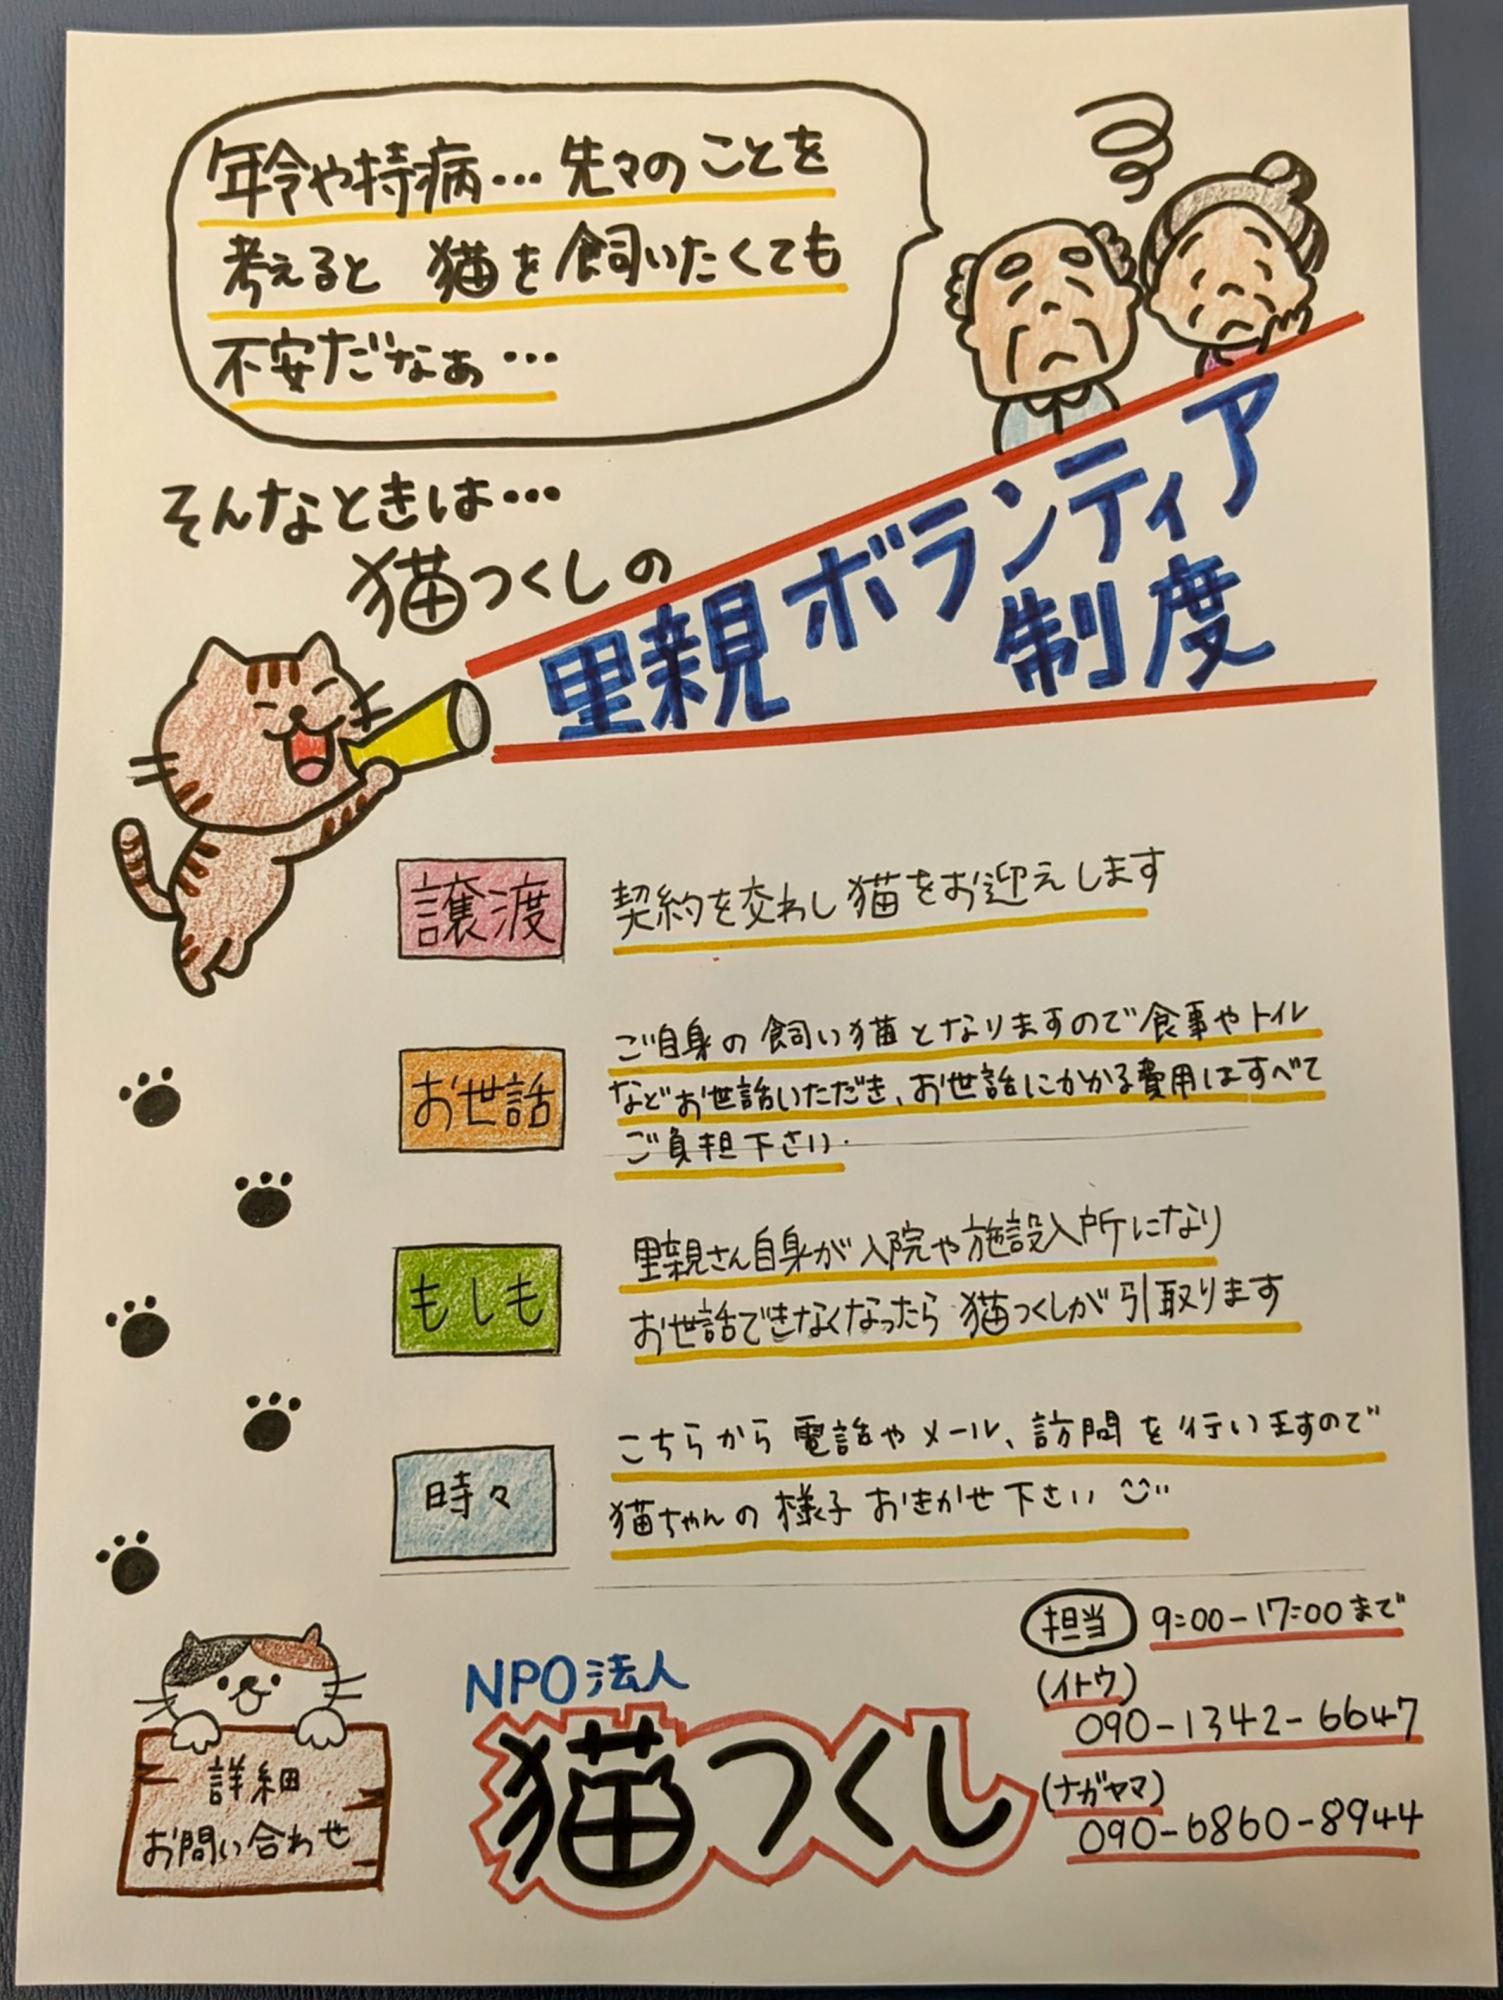 年令や持病…先々のことを
考えると 猫を飼いたくても
不安だなぁ…
そんなときは…
猫つくしの
里親ボランティア
制度
譲渡
契約を交わし猫をお迎えします
お世話
ご自身の飼い猫となりますので食事やトイレ
などお世話いただき、お世話にかかる費用はすべて
ご負担下さい.
もしも
里親さん自身が入院や施設入所になり
お世話できなくなったら猫つくしが引取ります
時々
こちらから電話やメール、訪問を行いますので
猫ちゃんの様子おきかせ下さい
詳細
お問い合わせ
NPO法人
猫つくし
担当 9:00-17:00まで
(イトウ)
090-1342-6647
(ナガヤマ)
090-6860-8944